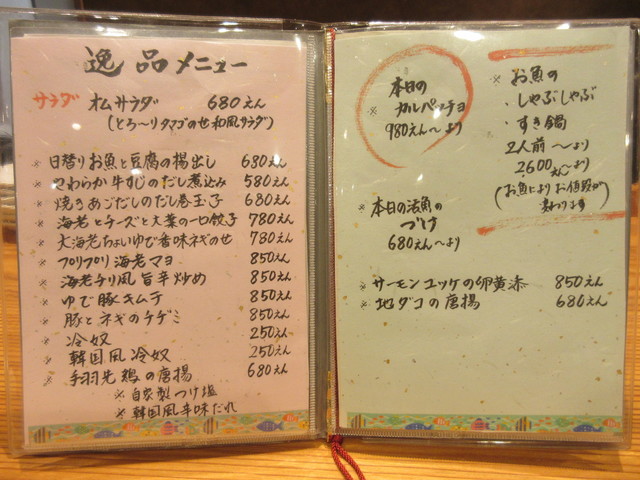 逸品メニュー
サラダ オムサラダ 680えん
(とろ〜りタマゴのせ和風サラダ)
※ 日替りお魚と豆腐の揚出し 680えん
※ やわらか牛すじのだし煮込み 580えん
※ 焼きあごだしのだし巻玉子 680えん
※ 海老とチーズと大葉の一口餃子 780えん
※ 大海老ちょいゆで香味ネギのせ 780えん
※ プリプリ海老マヨ 850えん
※ 海老チリ風旨辛炒め 850えん
※ ゆで豚キムチ 850えん
※ 豚とネギのチヂミ 850えん
※ 冷奴 250えん
※ 韓国風冷奴 250えん
※ 手羽先鶏の唐揚 680えん
※ 自家製つけ塩
※ 韓国風辛味だれ
本日の
※ カルパッチョ
980えん〜より
※ お魚の
・しゃぶしゃぶ
・すき鍋
2人前〜より
2600えん〜より
(お魚によりお値段が
変わります)
※ 本日の活魚の
づけ
680えん〜より
※ サーモンユッケの卵黄添 850えん
※ 地ダコの唐揚 680えん